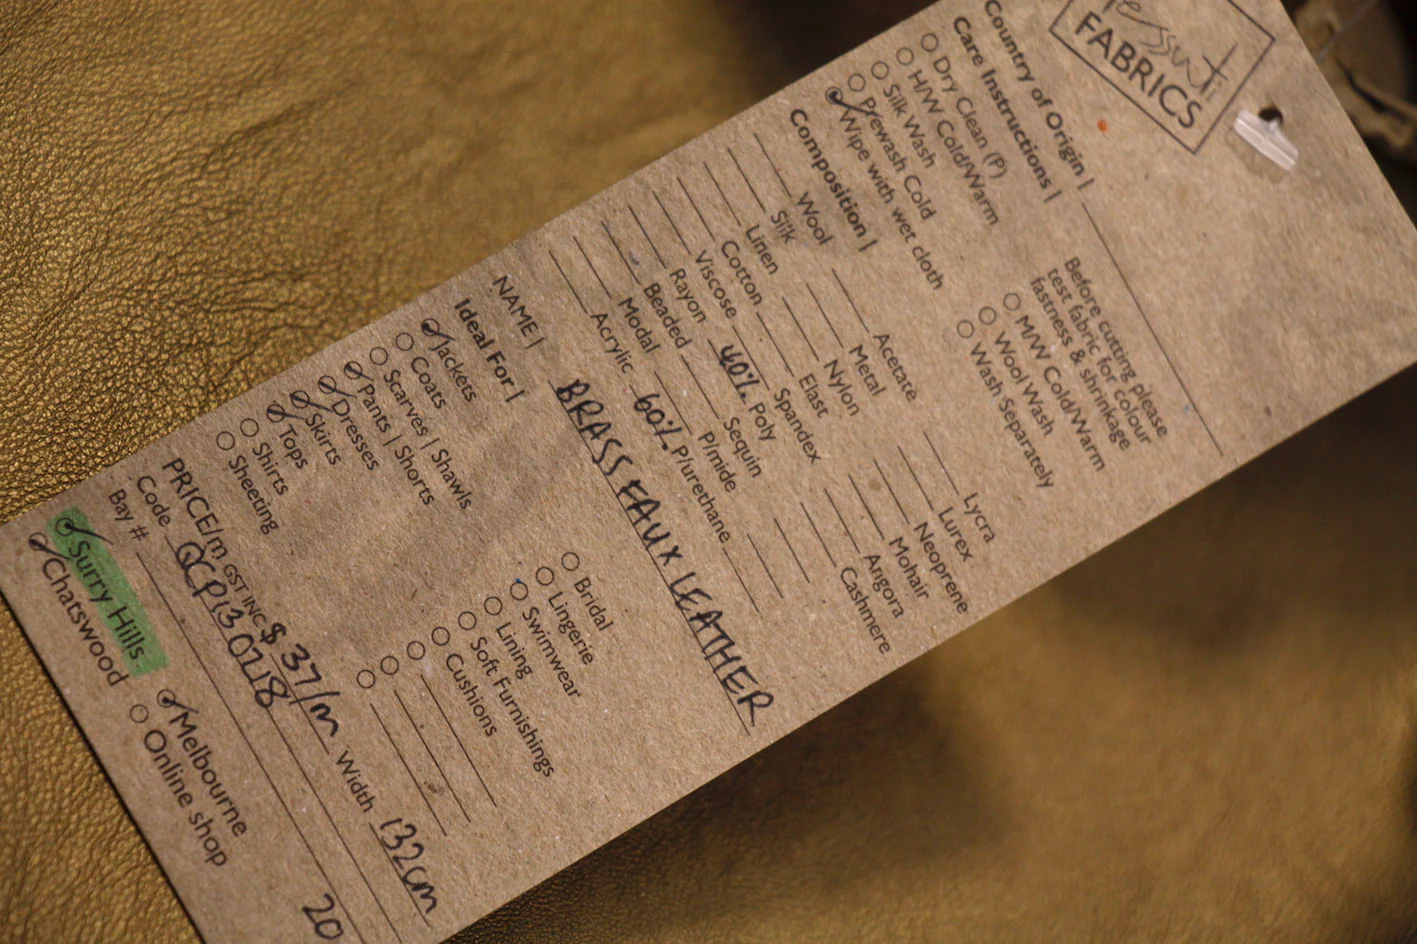 essuti
FABRICS
Country of Origin |
Care Instructions |
Dry Clean (P)
H/W Cold/Warm
Silk Wash
Prewash Cold
Wipe with wet cloth
Before cutting please
test fabric for colour
fastness & shrinkage
M/W Cold/Warm
Wool Wash
Wash Separately
Composition |
Wool
Silk
Linen
Cotton
Viscose
Rayon
Beaded
Modal
Acrylic
Acetate
Metal
Nylon
Elast
Spandex
40% Poly
Sequin
P/mide
60% P/urethane
Lycra
Lurex
Neoprene
Mohair
Angora
Cashmere
NAME | BRASS FAUX LEATHER
Ideal For |
Jackets
Coats
Scarves | Shawls
Pants | Shorts
Dresses
Skirts
Tops
Shirts
Sheeting
Bridal
Lingerie
Swimwear
Lining
Soft Furnishings
Cushions
PRICE/m GST INC $37/m Width 132cm
Code QCP130218
Bay # 20
Surry Hills
Chatswood
Melbourne
Online shop